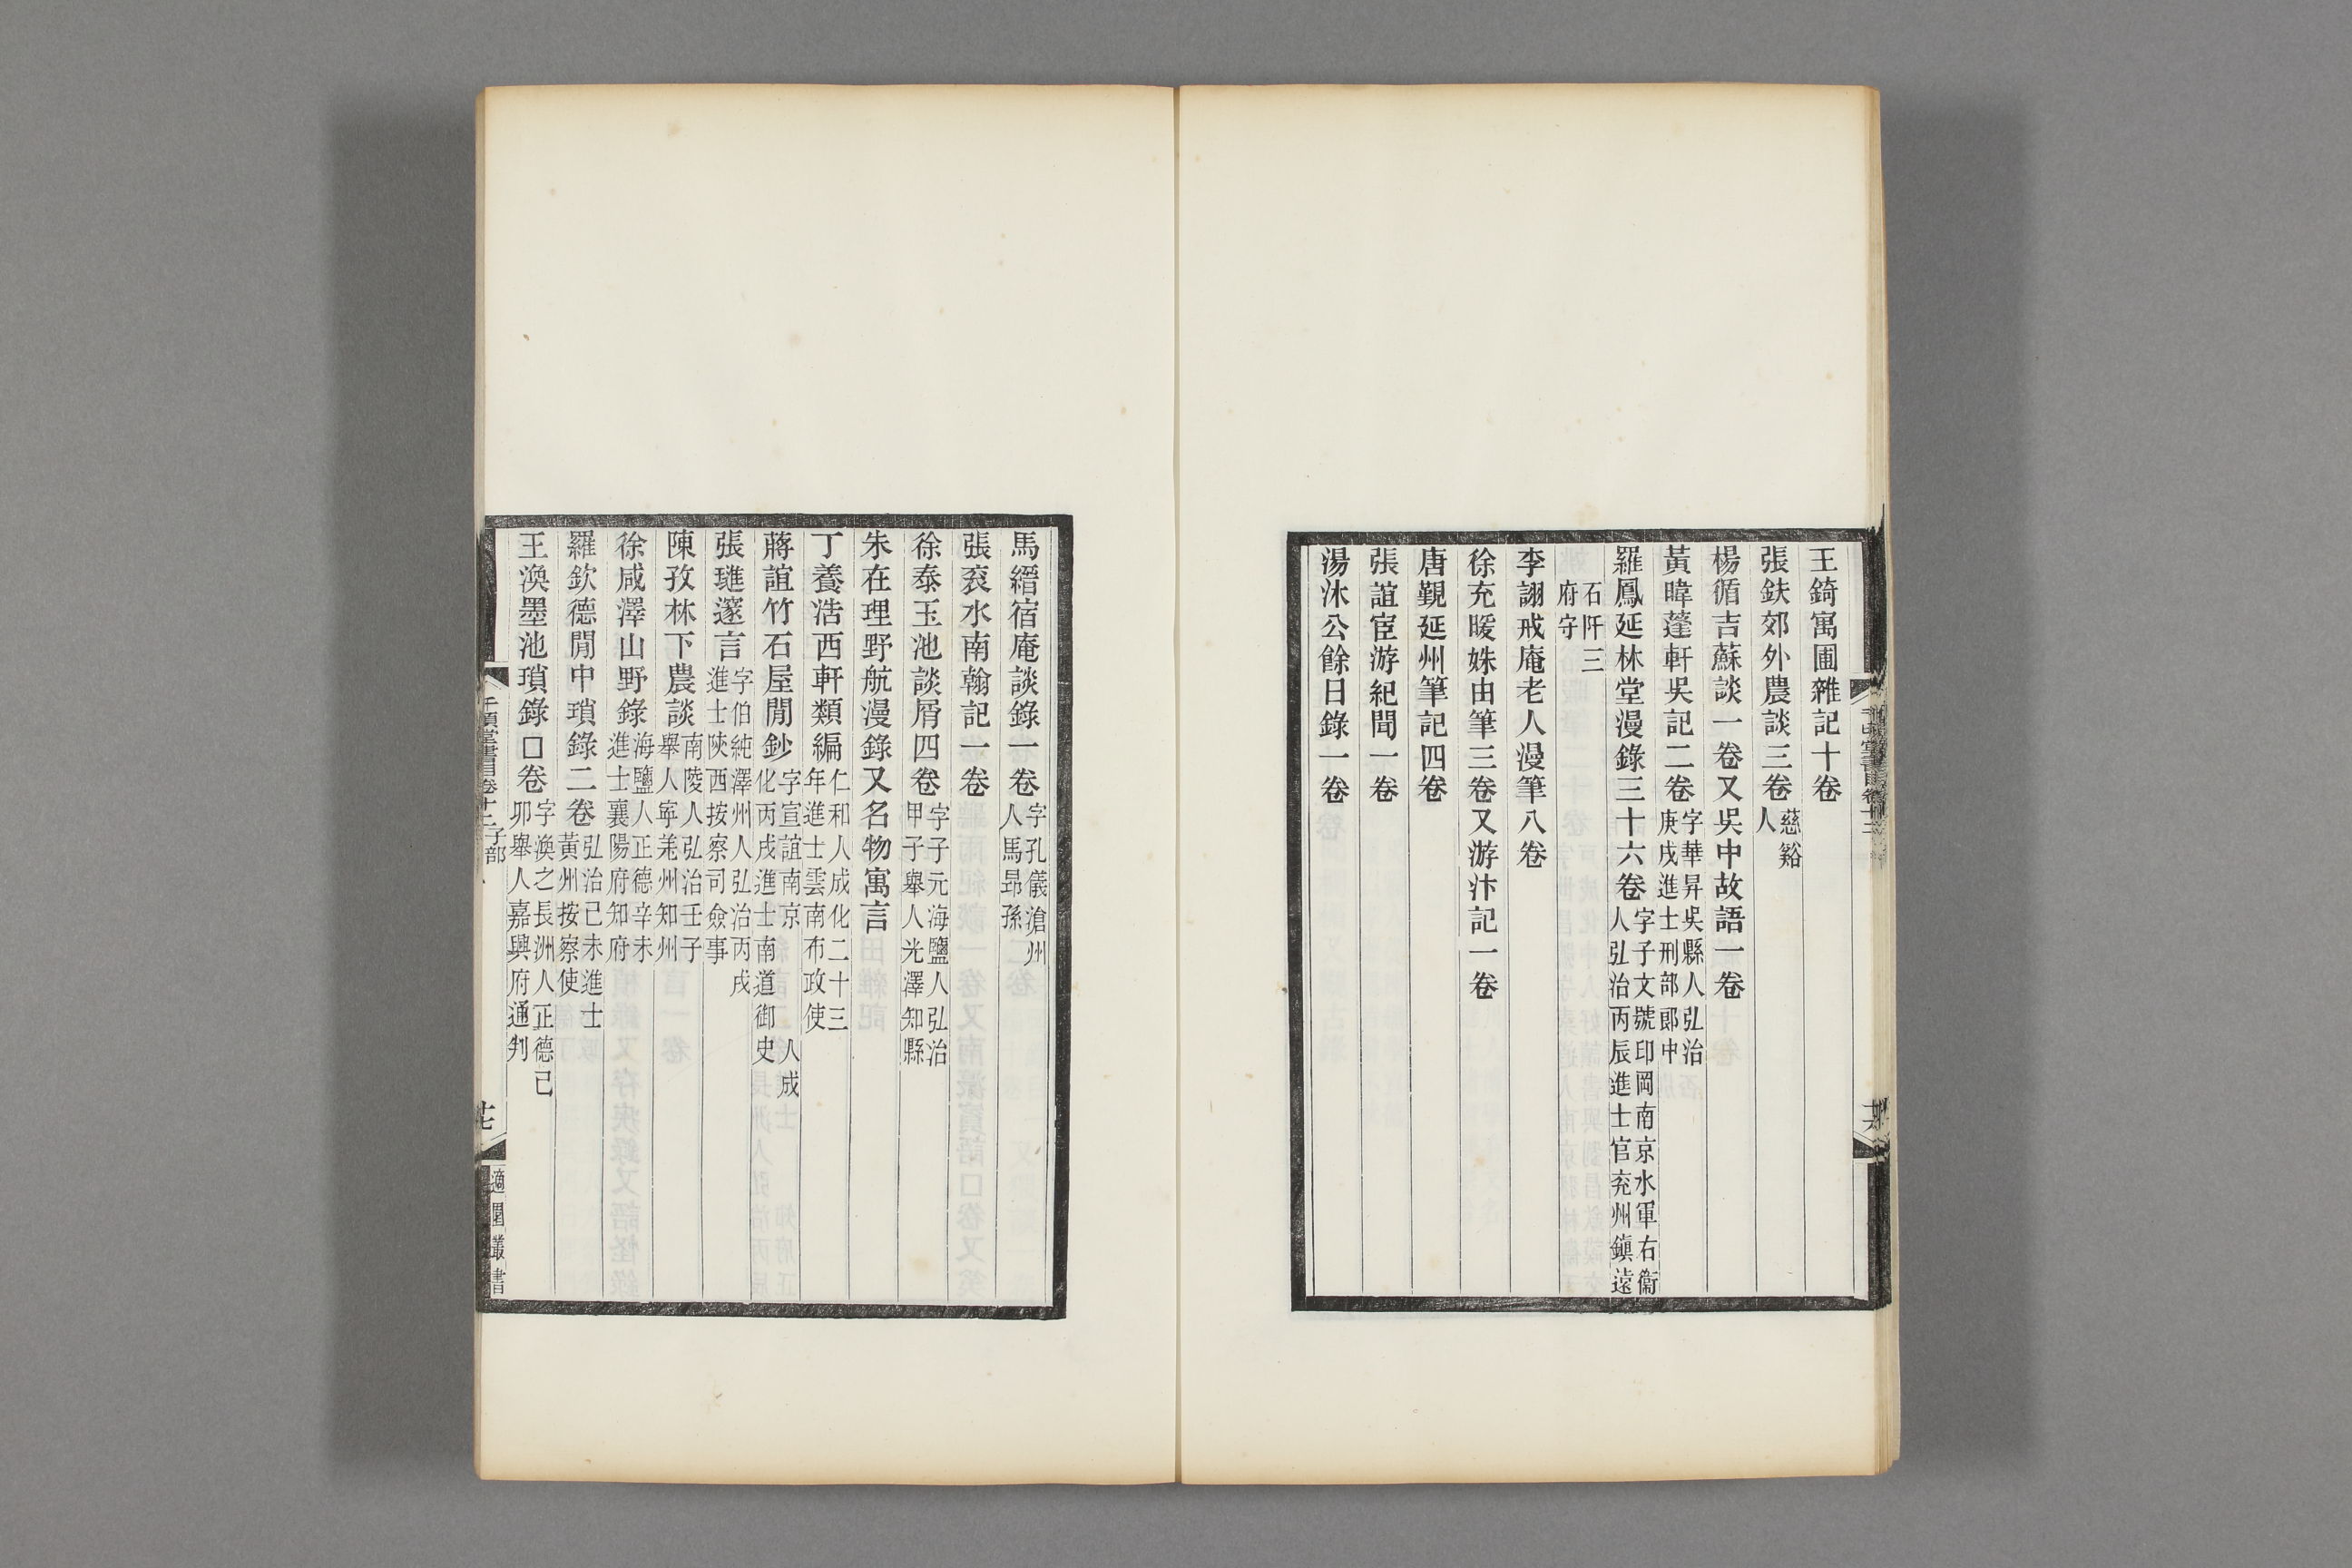 王錡寓圃雜記十卷
張鈇郊外農談三卷慈谿人
楊循吉蘇談一卷又吳中故語一卷
黃暐蓬軒吳記二卷字華昇吳縣人弘治庚戌進士刑部郎中
羅鳳延林堂漫錄三十六卷字子文號印岡南京水軍右衞人弘治丙辰進士官兖州鎭遠
石阡三府守
李詡戒庵老人漫筆八卷
徐充暖姝由筆三卷又游汴記一卷
唐覲延州筆記四卷
張誼宦游紀聞一卷
湯沐公餘日錄一卷
馬縉宿庵談錄一卷字孔儀滄州人馬昻孫
張衮水南翰記一卷
徐泰玉池談屑四卷字子元海鹽人弘治甲子舉人光澤知縣
朱在理野航漫錄又名物寓言
丁養浩西軒類編仁和人成化二十三年進士雲南布政使
蔣誼竹石屋閒鈔字宣誼南京人成化丙戌進士南道御史
張璡邃言字伯純澤州人弘治丙戌進士陝西按察司僉事
陳孜林下農談南陵人弘治壬子舉人寧羗州知州
徐咸澤山野錄海鹽人正德辛未進士襄陽府知府
羅欽德閒中瑣錄二卷弘治己未進士黃州按察使
王渙墨池瑣錄口卷字渙之長洲人正德己卯舉人嘉興府通判
千頃堂書目卷十二子部
適園叢書